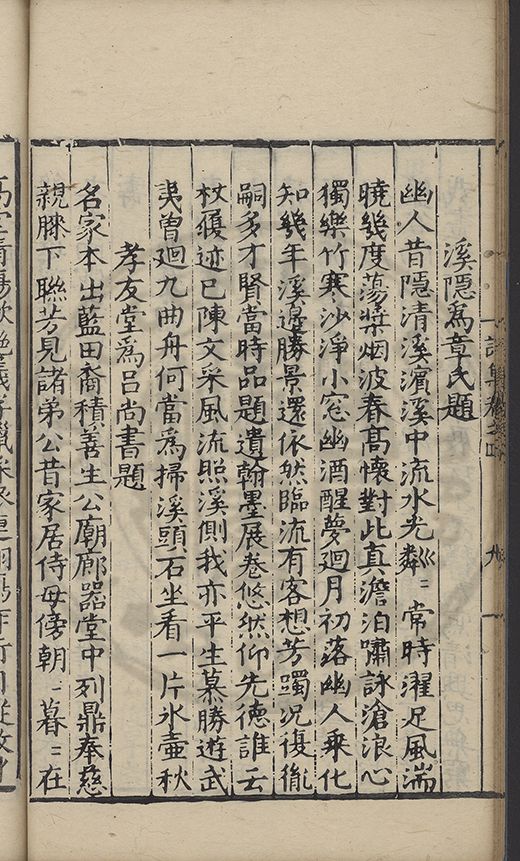 溪隱為章氏題
幽人昔隱清溪濵溪中流水光粼〻常時濯足風湍
曉幾度蕩槳烟波春髙懷對此真澹泊嘯詠滄浪心
獨樂竹寒沙淨小窓幽酒醒夢廻月初落幽人乗化
知幾年溪邉勝景還依然臨流有客想芳躅况復胤
嗣多才賢當時品題遺翰墨展卷悠然仰先德誰云
杖履迹已陳文采風流照溪側我亦平生慕勝遊武
夷曽廻九曲舟何當為掃溪頭石坐看一片氷壺秋
孝友堂為吕尚書題
名家本出藍田裔積善生公廟廊器堂中列鼎奉慈
親膝下聯芳見諸弟公昔家居侍母傍朝〻暮〻在